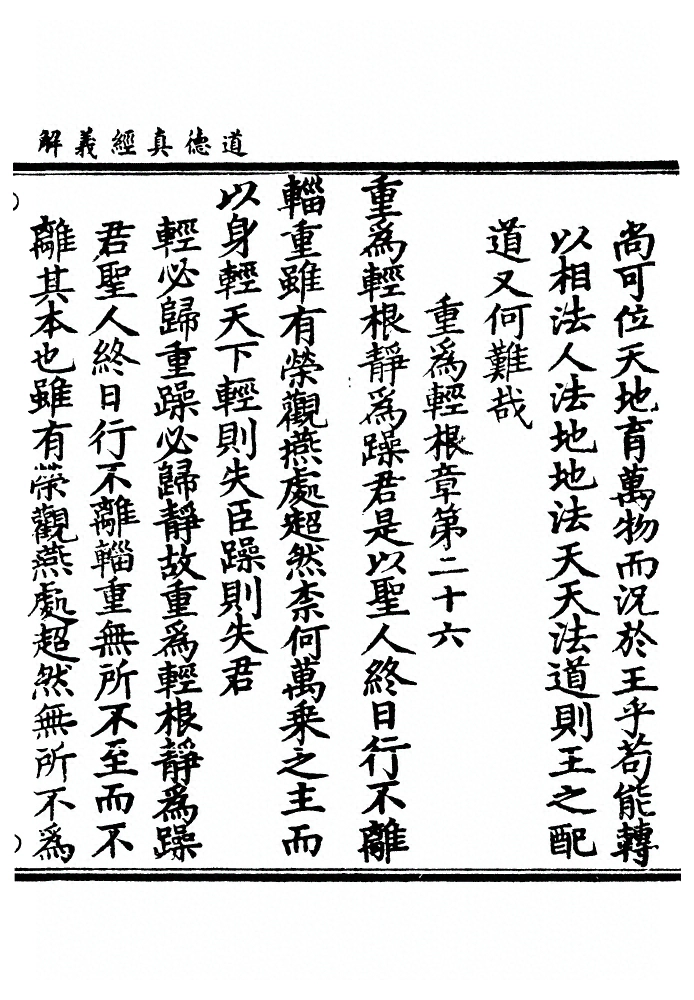 道德真經義解
尚可位天地育萬物而况於王乎苟能轉
以相法人法地地法天天法道則王之配
道又何難哉
重為輕根章第二十六
重為輕根靜為躁君是以聖人終日行不離
輜重雖有榮觀燕處超然柰何萬乗之主而
以身輕天下輕則失臣躁則失君
輕必歸重躁必歸靜故重為輕根靜為躁
君聖人終日行不離輜重無所不至而不
離其本也雖有榮觀燕處超然無所不為